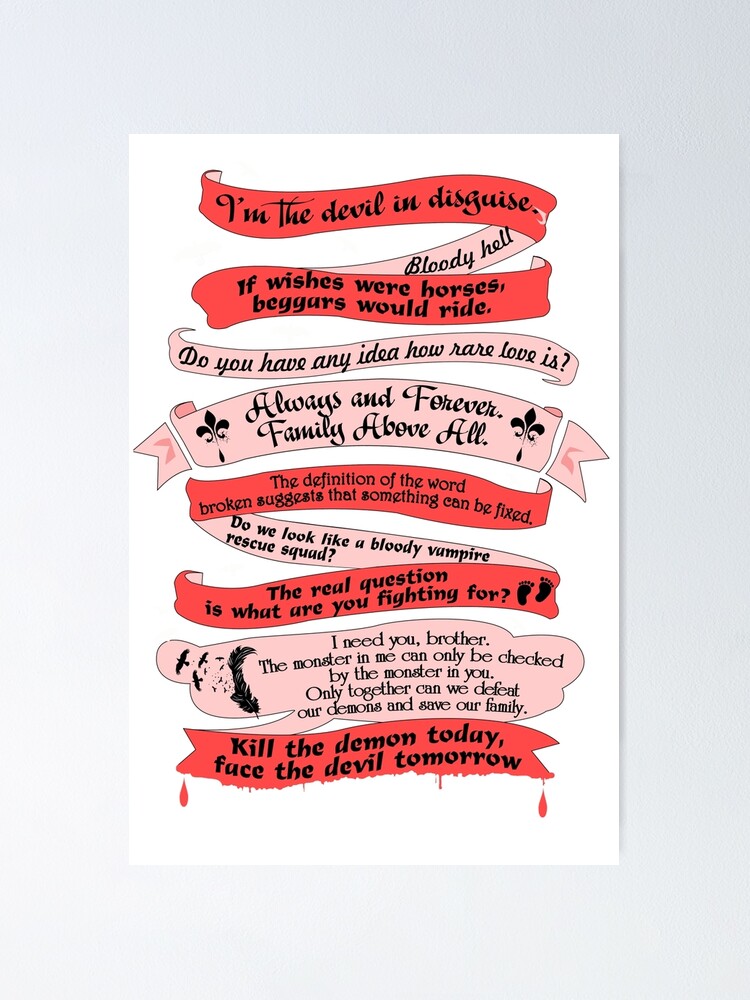 I'm the devil in disguise.
Bloody hell
If wishes were horses,
beggars would ride.
Do you have any idea how rare love is?
Always and Forever.
Family Above All.
The definition of the word
broken suggests that something can be fixed.
Do we look like a bloody vampire
rescue squad?
The real question
is what are you fighting for?
I need you, brother.
The monster in me can only be checked
by the monster in you.
Only together can we defeat
our demons and save our family.
Kill the demon today,
face the devil tomorrow